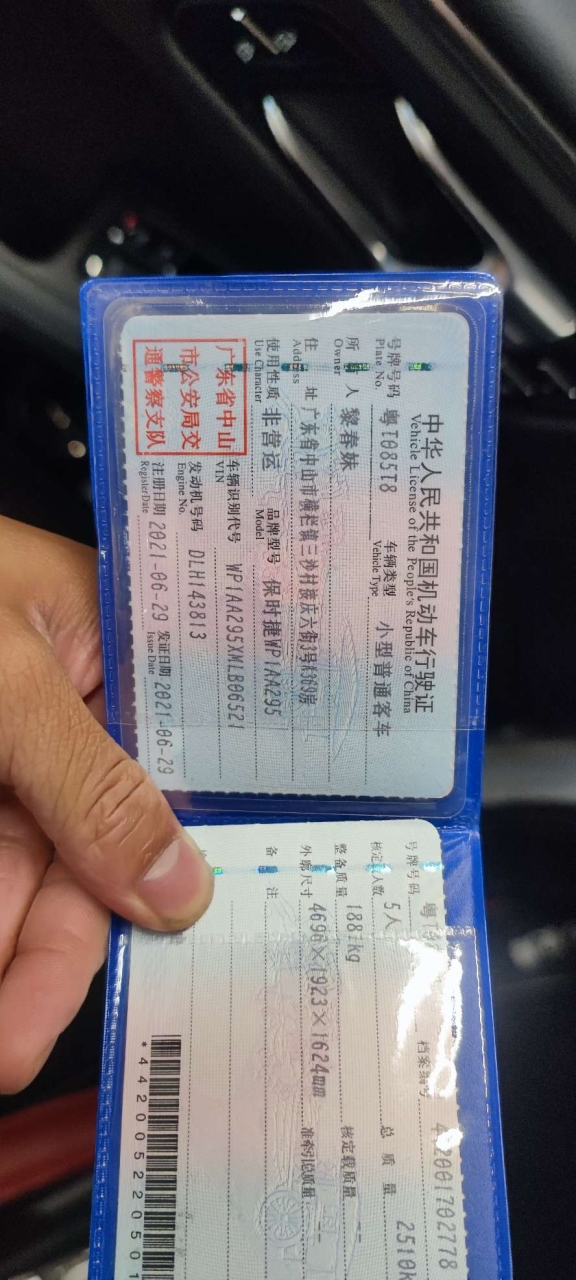 中华人民共和国机动车行驶证
Vehicle License of the People's Republic of China
号牌号码 粤T085T8 车辆类型 小型普通客车
Plate No. Vehicle Type
所 人 黎春妹
Owner
住 址 广东省中山市横栏镇三沙村接庆六街3号
Address
使用性质 非营运 品牌型号 保时捷WP1AA295
Use Character Model
广东省中山
市公安局交
通警察支队
车辆识别代号 WP1AA295XMLB06521
VIN
发动机号码 DLH143813
Engine No.
注册日期 2021-06-29 发证日期 2021-06-29
Register Date Issue Date
号牌号码 粤 档案编号 442001702778
核定 人数 5人 总 质 量 2510k
整备质量 188 kg 核定载质量
外廓尺寸 4696×1923×1624mm 准牵引总质量
备 注
*442005220501